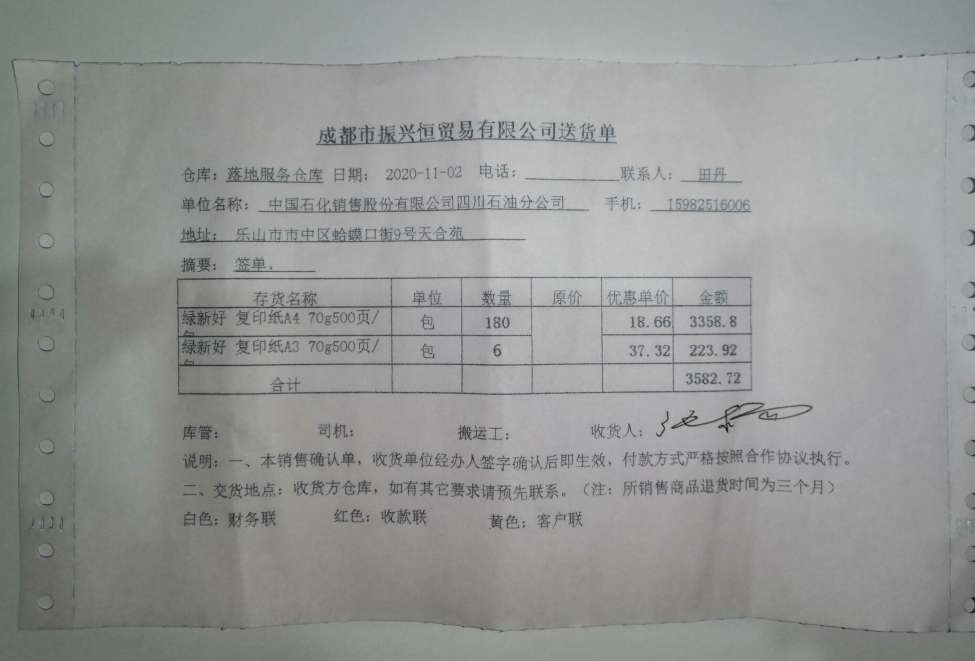 成都市振兴恒贸易有限公司送货单
仓库：落地服务仓库 日期： 2020-11-02 电话： 联系人： 田丹
单位名称： 中国石化销售股份有限公司四川石油分公司 手机： 15982516006
地址： 乐山市市中区蛤蟆口街9号天合苑
摘要： 签单。
存货名称 单位 数量 原价 优惠单价 金额
绿新好 复印纸A4 70g500页/包 包 180 18.66 3358.8
绿新好 复印纸A3 70g500页/包 包 6 37.32 223.92
合计 3582.72
库管： 司机： 搬运工： 收货人：
说明：一、本销售确认单，收货单位经办人签字确认后即生效，付款方式严格按照合作协议执行。
二、交货地点：收货方仓库，如有其它要求请预先联系。（注：所销售商品退货时间为三个月）
白色：财务联 红色：收款联 黄色：客户联